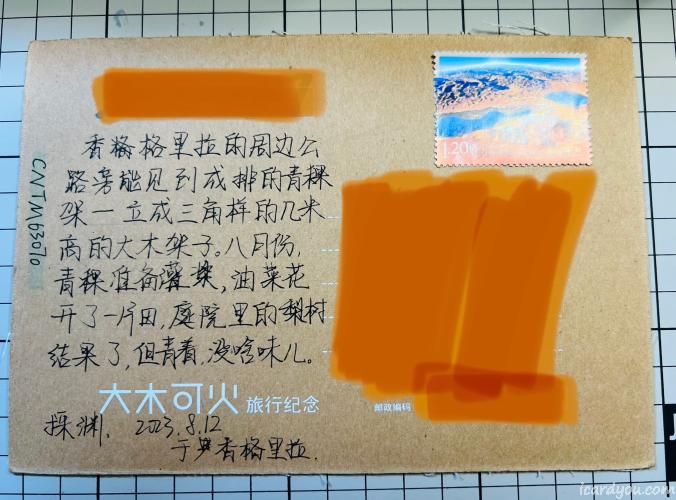 1.20
CNTM63070
香格里拉的周边公
路旁能见到成排的青稞
架一立成三角样的几米
高的大木架子。八月份,
青稞准备
油菜花
开了一片田,庭院里的梨树
结果了,但青着,没啥味儿。
大木可火 旅行纪念
邮政编码
探渊. 2023.8.12
于 香格里拉.
icardyou.com